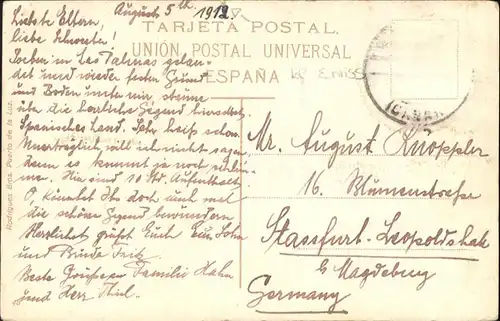 August 5th 1912
TARJETA POSTAL.
UNIÓN POSTAL UNIVERSAL
ESPAÑA
Rodriguez Bros. Puerto de la Luz.
Liebste Eltern,
liebe Schwester!
Soeben in Las Palmas gelan-
det und wieder festen Grund
und Boden unter mir, staune
über die herrliche Gegend
Spanisches Land. Sehr heiß schon.
Unerträglich, will ich nicht sagen,
denn es kommt ja noch schlim-
mer. Hier sind 10 Std. Aufenthalt.
O, könntet Ihr doch auch mal
die schöne Gegend bewundern
Herzlichst grüßt Euch Euer Sohn
und Bruder Fritz
Beste Grüße an Familie Hahn
und Herr Thiel.
Mr. August Knoppler
16. Blumenstraße
Stassfurt-Leopoldshall
b/ Magdeburg
Germany